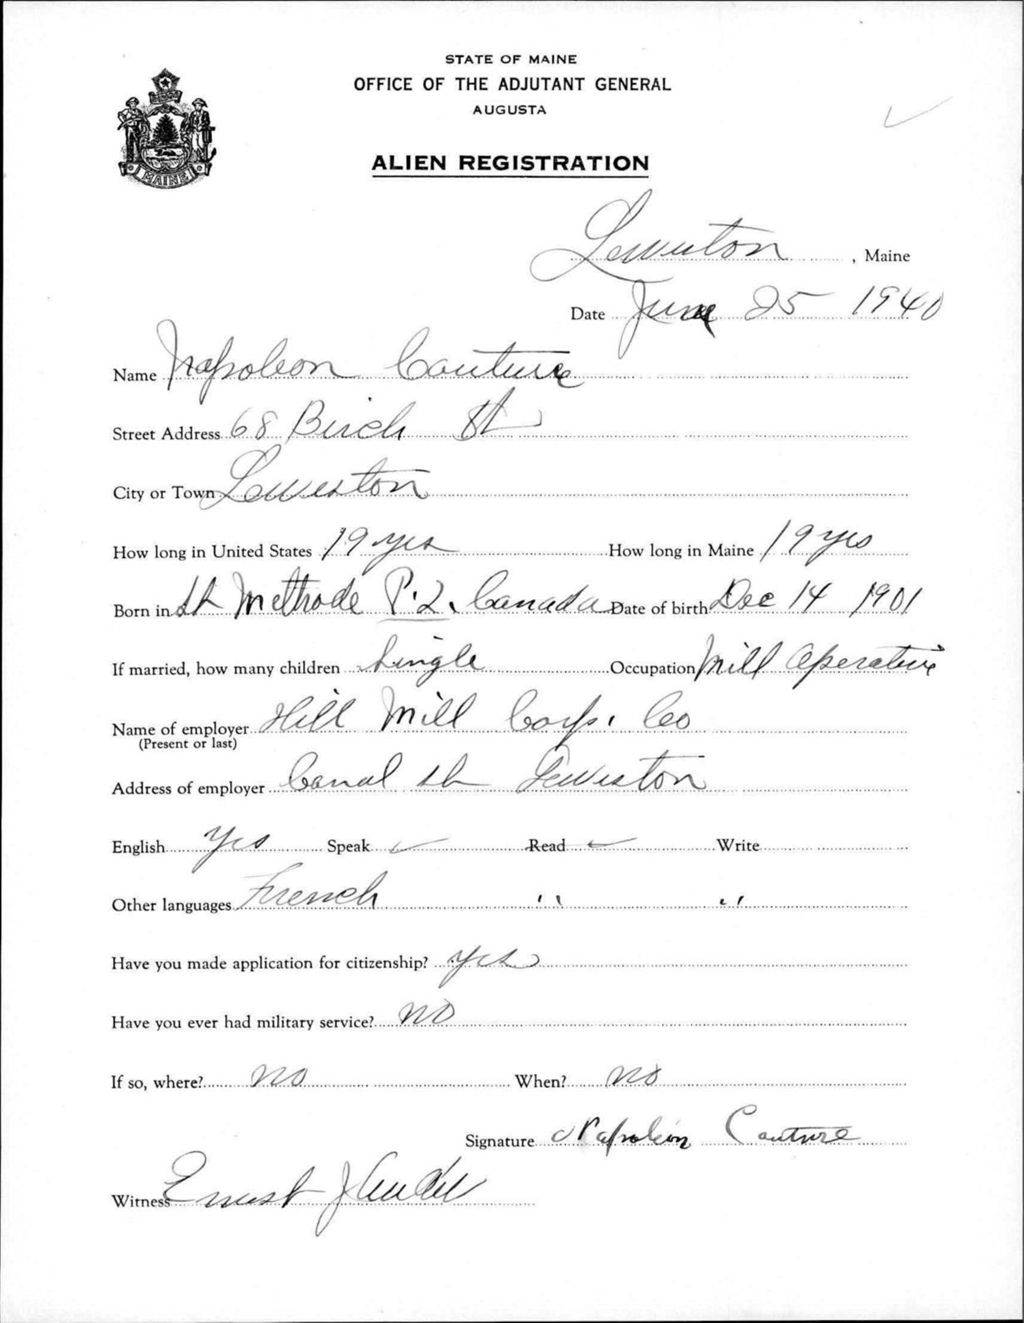 STATE OF MAINE
OFFICE OF THE ADJUTANT GENERAL
AUGUSTA
ALIEN REGISTRATION
MAINE
Lewiston, Maine
Date June 25 1940
Name Napoleon Couture
Street Address 68 Birch St
City or Town Lewiston
How long in United States 19 yrs How long in Maine 19 yrs
Born in St Methode P.Q. Canada Date of birth Dec 14 1901
If married, how many children Single Occupation Mill Operative
Name of employer Hill Mill Corp. Co
(Present or last)
Address of employer Canal St Lewiston
English Yes Speak ✓ Read ✓ Write
Other languages French " "
Have you made application for citizenship? Yes
Have you ever had military service? NO
If so, where? NO When? NO
Signature Napoleon Couture
Witness Ernest J